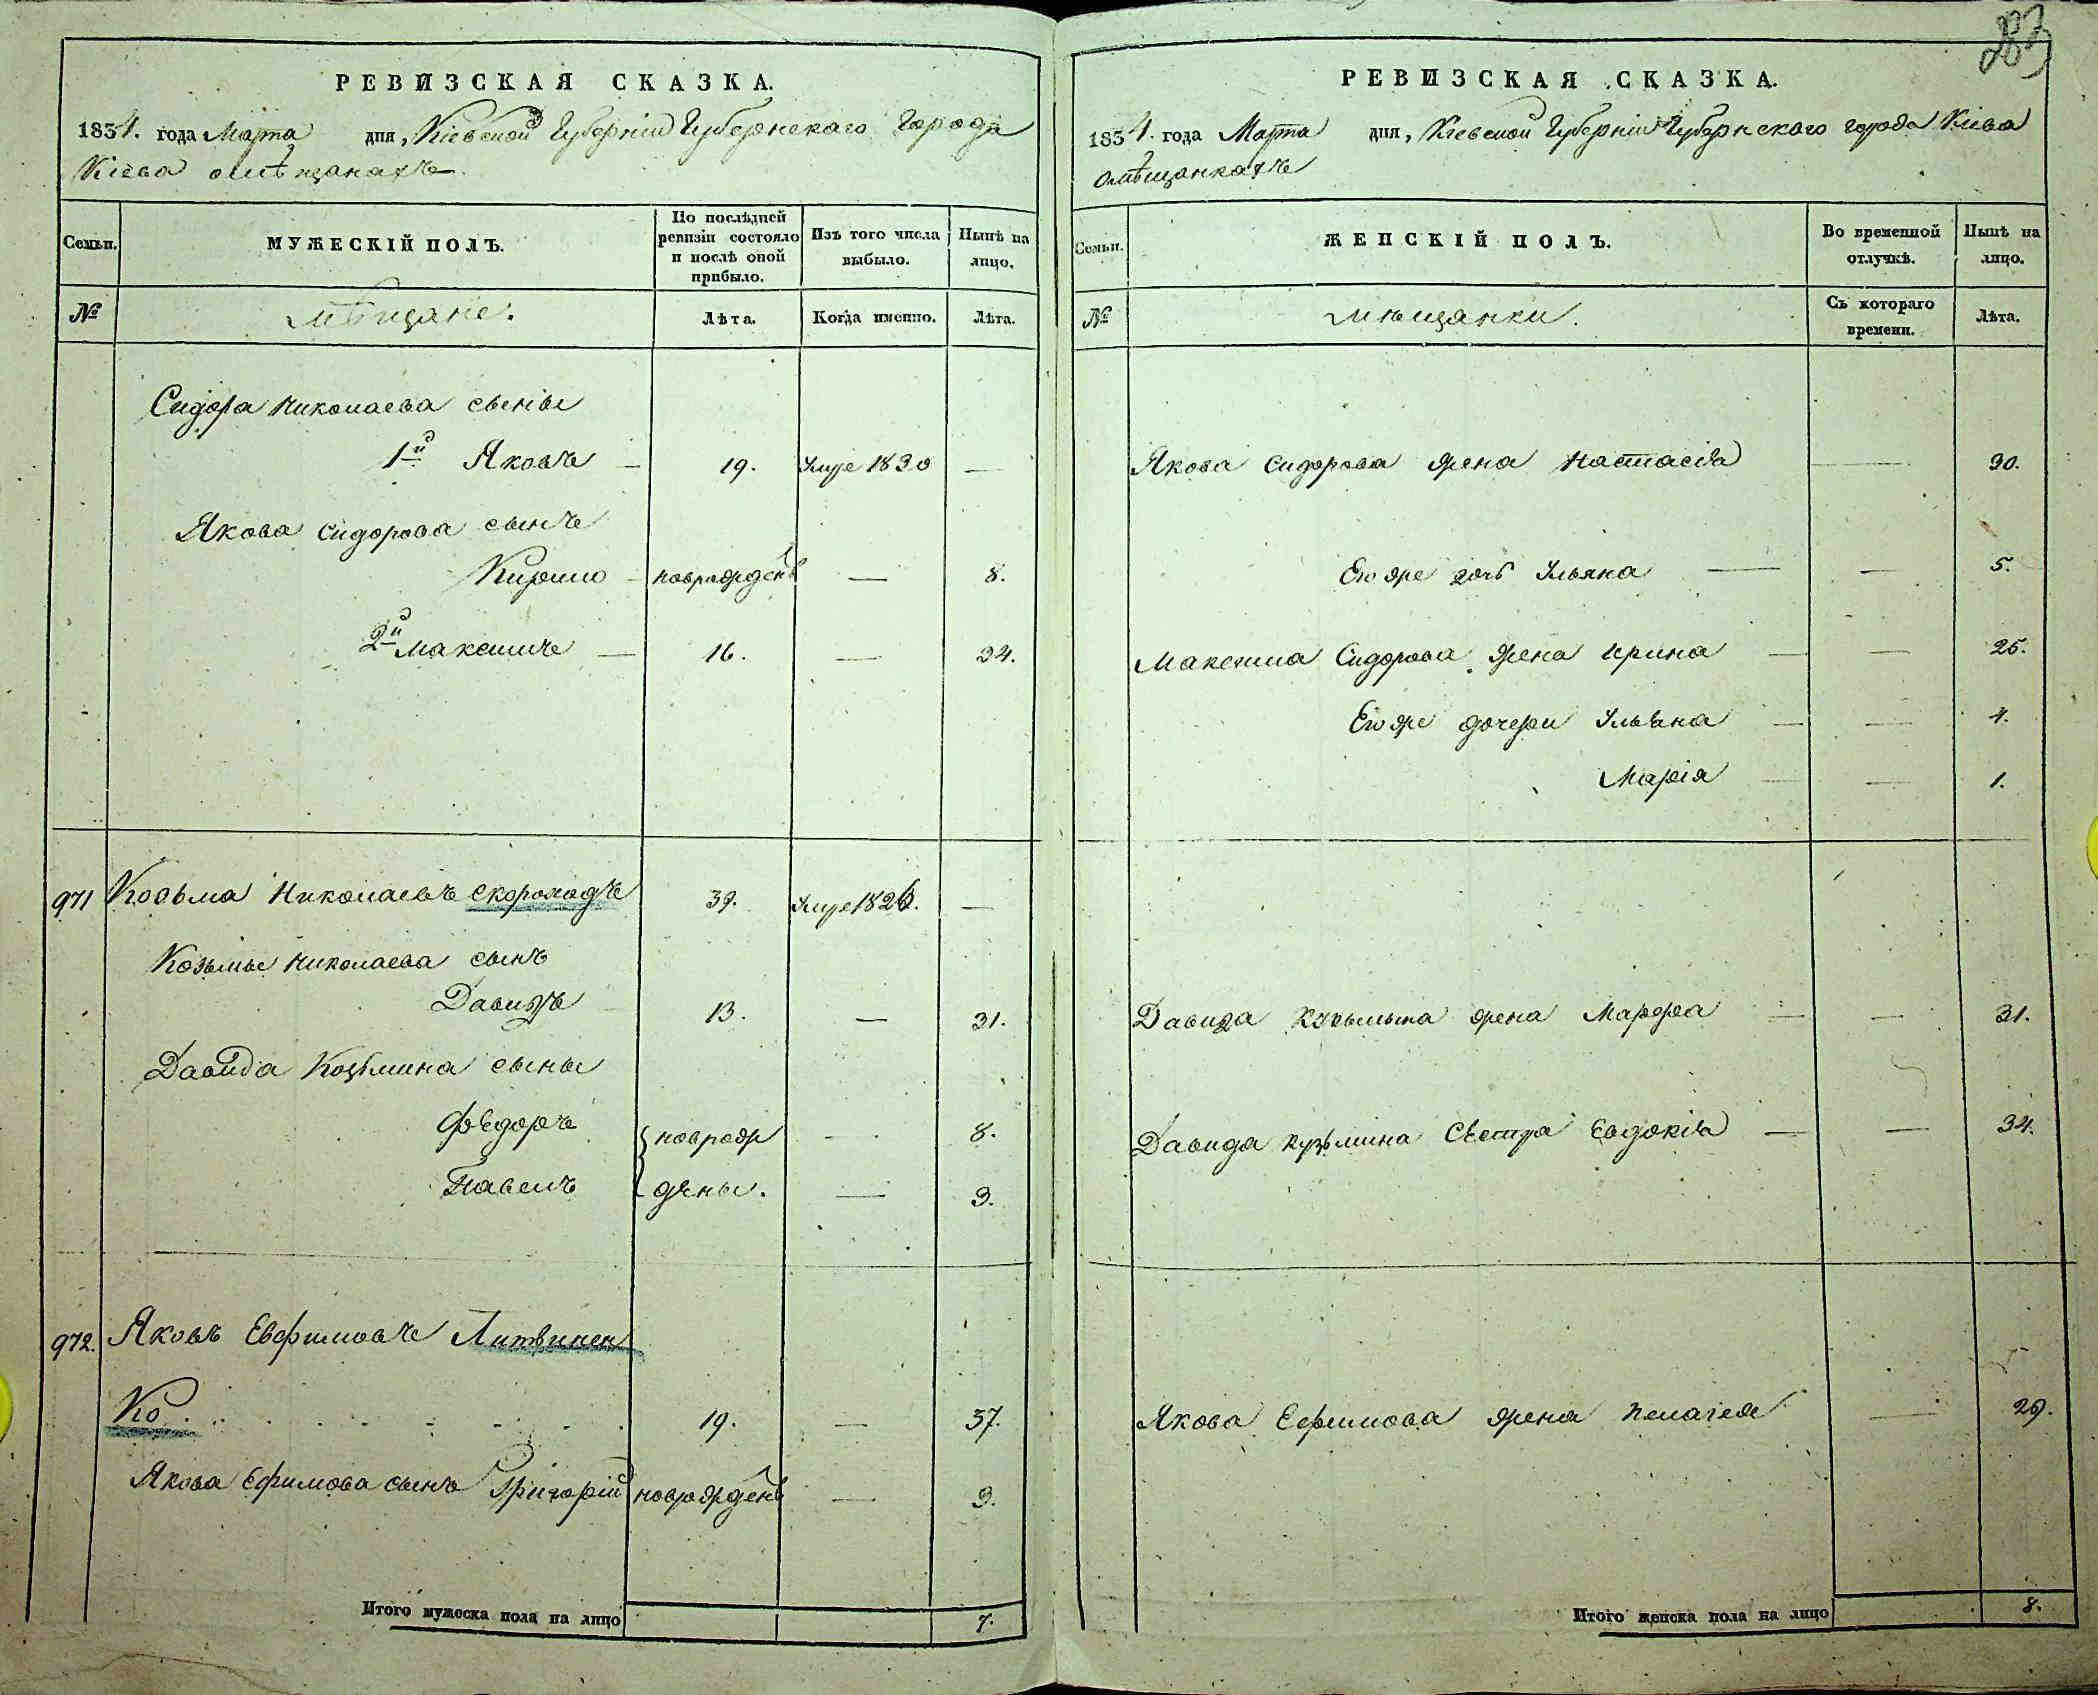 283
РЕВИЗСКАЯ СКАЗКА.
1834. года Марта дня, Кіевской Губерніи Губернскаго города
Кіева о мѣщанахъ
Семьи.
МУЖЕСКІЙ ПОЛЪ.
По послѣдней ревизіи состояло и послѣ оной прибыло.
Изъ того числа выбыло.
Нынѣ на лицо.
№
мѣщане.
Лѣта.
Когда именно.
Лѣта.
Сидора Николаева сыны
1й Яковъ — 19. умре 1830 —
Якова Сидорова сынъ
Кирило — новрожденъ — 8.
2й Максимъ — 16. — 34.
971 Козьма Николаевъ Скороходъ 39. умре 1826. —
Козьмы Николаева сынъ
Давидъ 13. — 31.
Давида Козьмина сыны
Федоръ новрож — 8.
Павелъ дены. — 3.
972. Яковъ Евфимовъ Литвинен
ко 19. — 37.
Якова Ефимова сынъ Григорій новрожденъ — 3.
Итого мужеска пола на лицо 7.
РЕВИЗСКАЯ СКАЗКА.
1834. года Марта дня, Кіевской Губерніи Губернскаго города Кіева
о мѣщанкахъ
Семьи.
ЖЕНСКІЙ ПОЛЪ.
Во временной отлучкѣ.
Нынѣ на лицо.
№
мѣщанки.
Съ котораго времени.
Лѣта.
Якова Сидорова жена Настасія — 30.
Его же дочь Ульяна — — 5.
Максима Сидорова жена Ирина — — 25.
Его же дочери Ульяна — — 4.
Марія — — 1.
Давида Кузьмина жена Марфа — — 31.
Давида Кузьмина сестра Евдокія — — 34.
Якова Ефимова жена Пелагея — 29.
Итого женска пола на лицо 8.